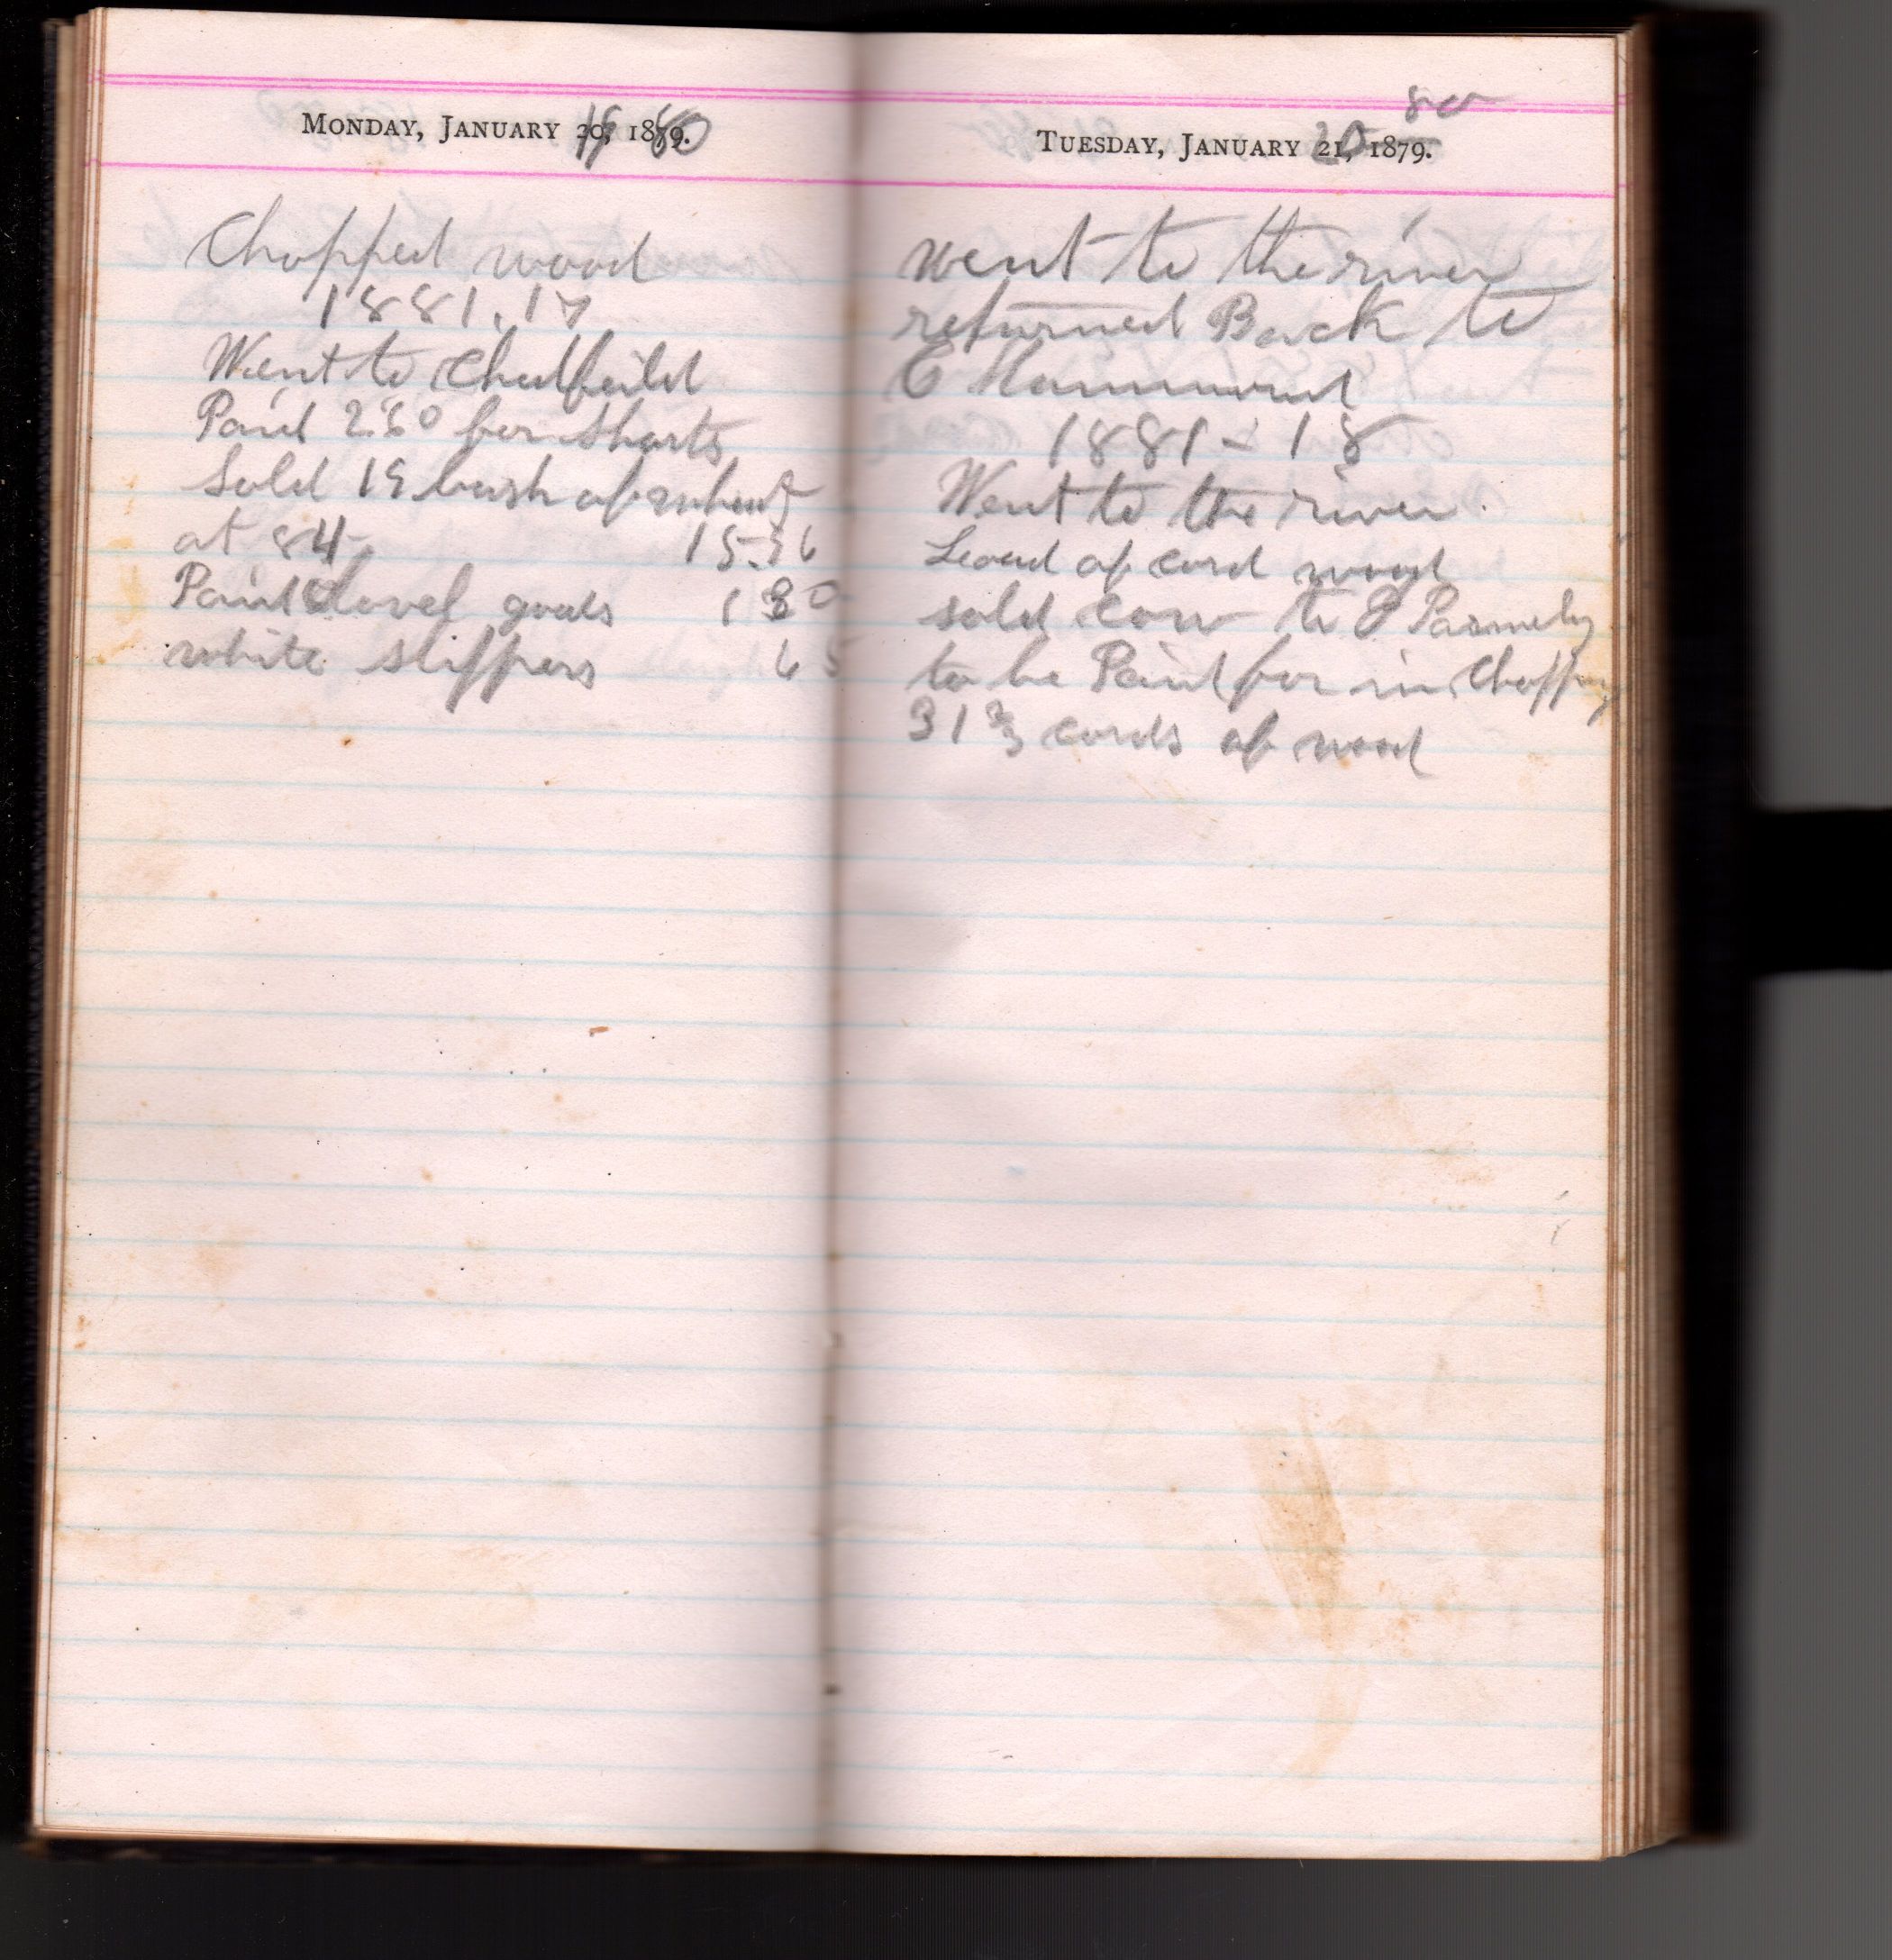 MONDAY, JANUARY 19, 1880.
Chopped wood
1881.17
Went to Chatfeild
Paid 2.60 for Shorts
Sold 19 bush of wheat
at 84 15.96
Paid goods 1 80
white slippers 65
TUESDAY, JANUARY 20, 1879. 80
went to the river
returned Back to
E Hammond
1881 - 18
Went to the river.
Load of cord wood
sold cow to P Parmely
to be Paid for in Chopping
31 2/3 cords of wood